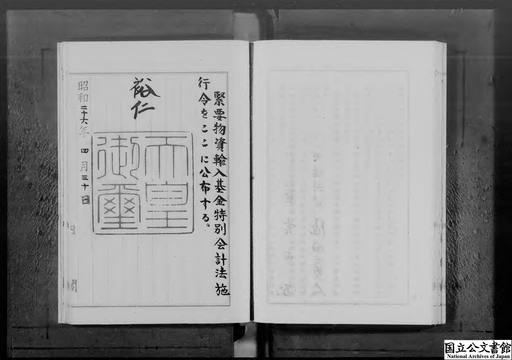 緊要物資輸入基金特別会計法施
行令をここに公布する。
裕仁
天皇
御璽
昭和二十六年 四月三十日
国立公文書館
National Archives of Japan